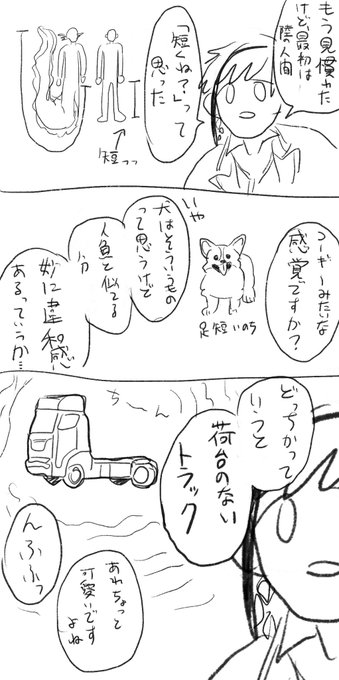 もう見慣れた
けど、最初は
陸の人間
「短くね?」って
思った
短っっ
コーギーみたいな
感覚ですか?
足短いのち
いや
犬はそういうもの
って思うけど
人魚と似てる
分
妙に違和感
あるっていうか…
どっちかって
いうと
荷台のない
トラック
ちーん
んふふっ
あれちょっと
可愛いです
よね